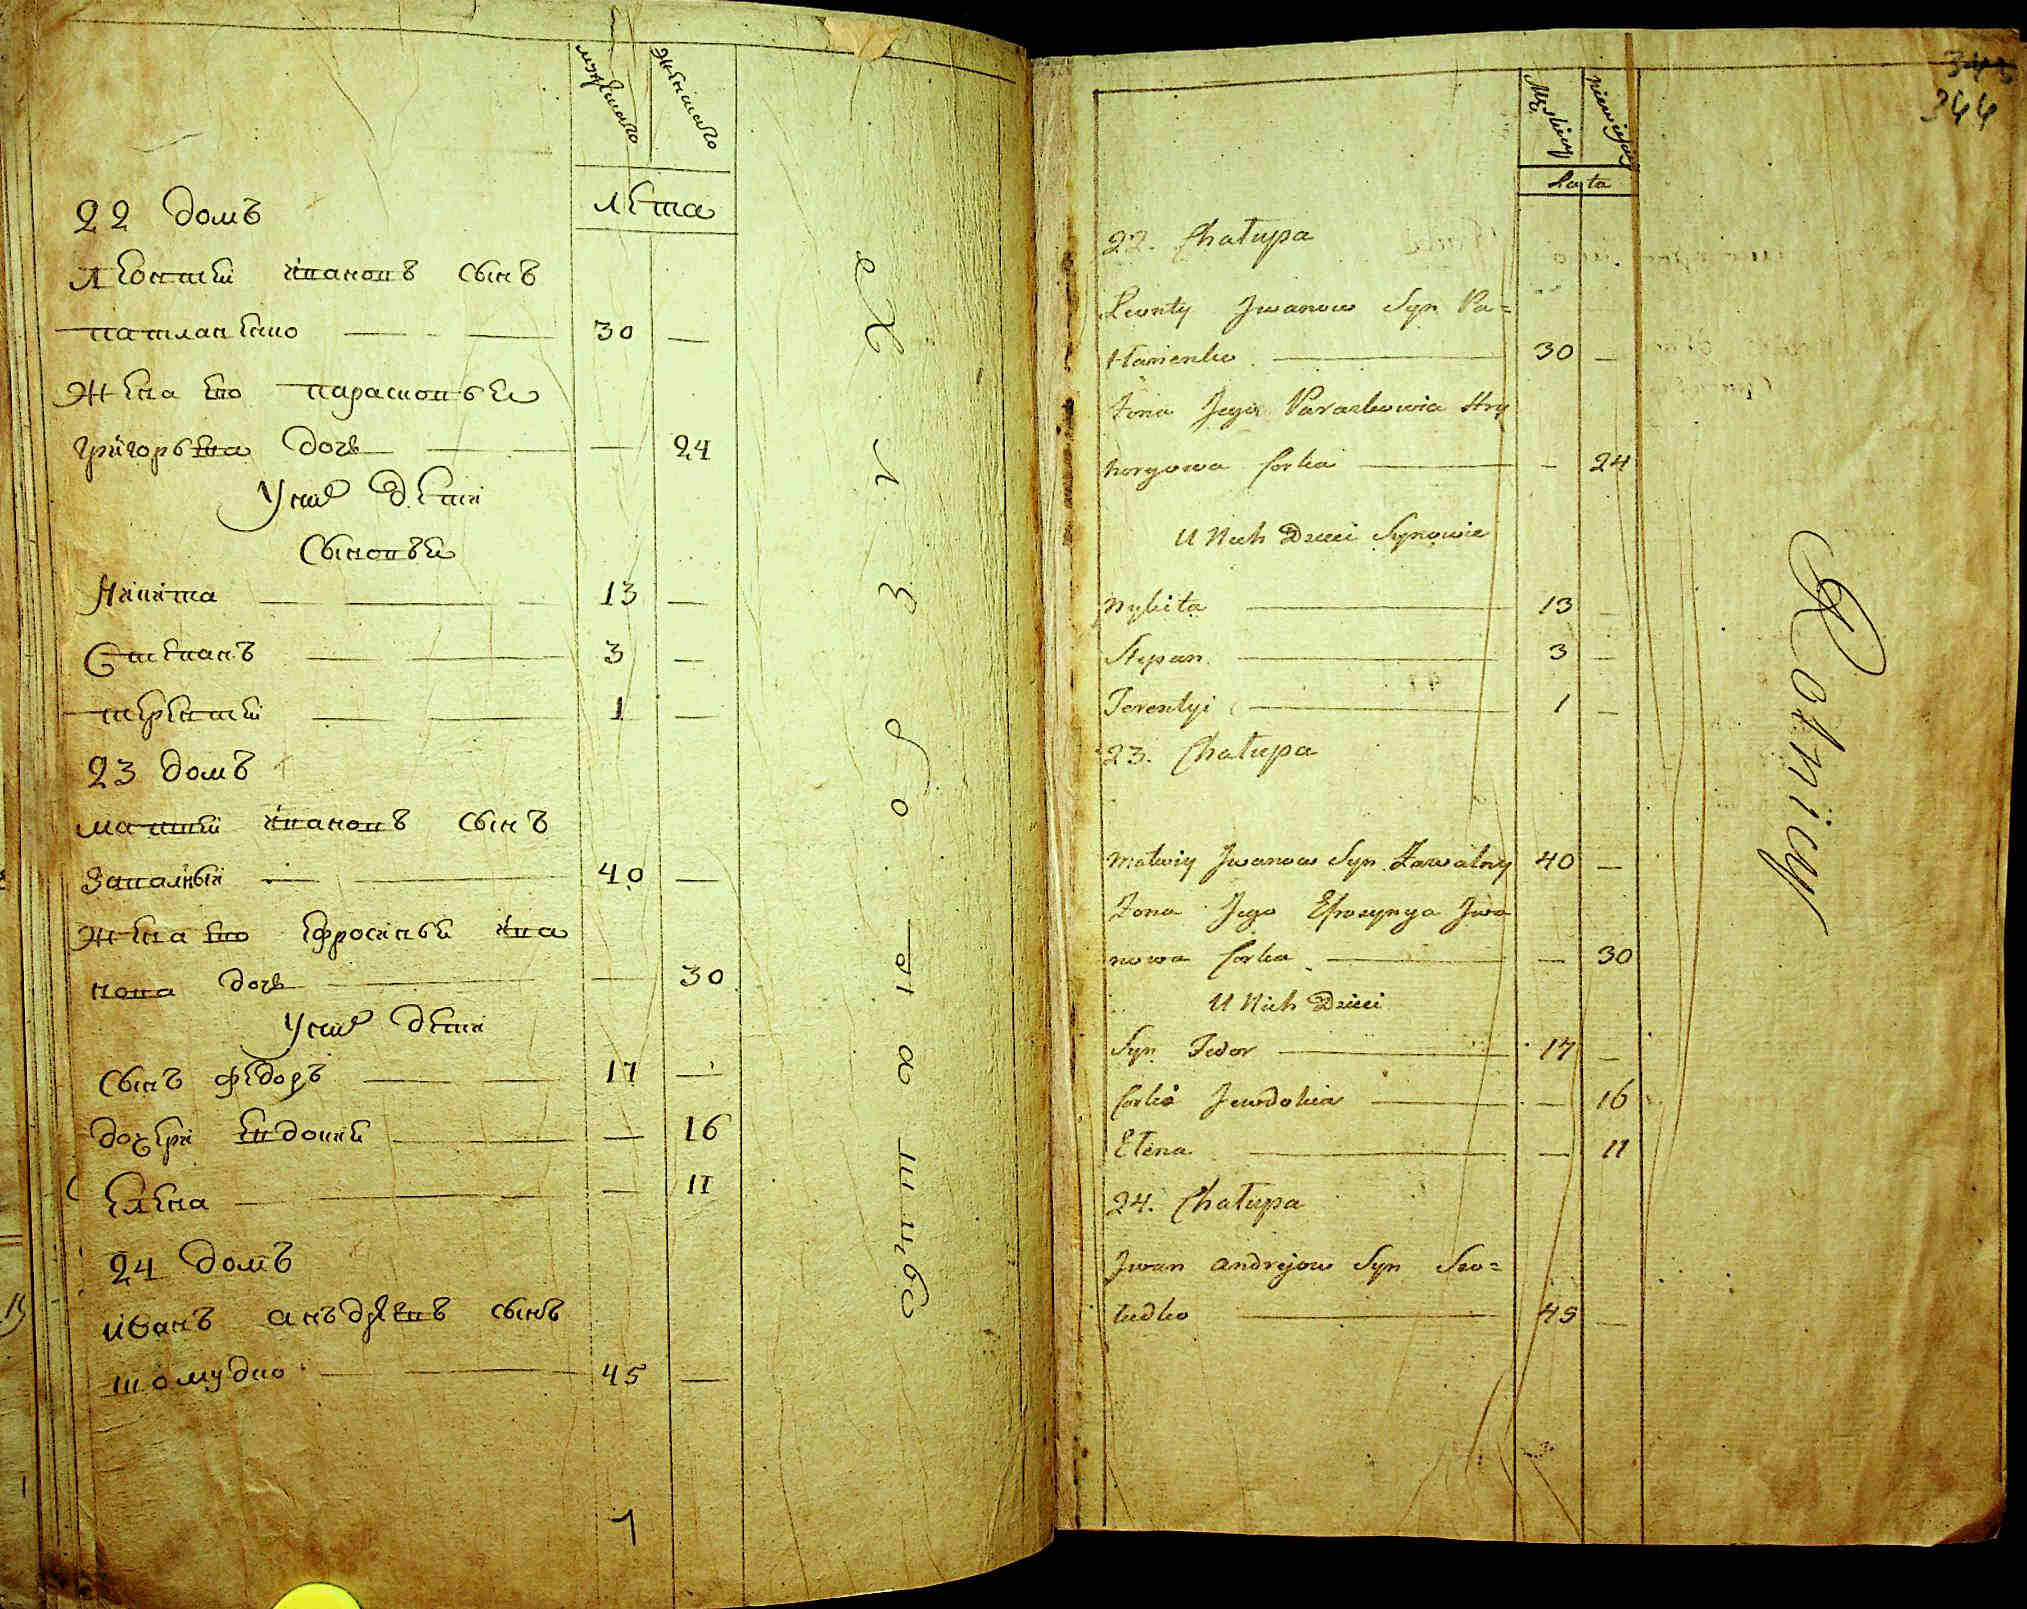 мужескаго
женскаго
лета
22 домъ
Леонтий ивановъ сынъ
патланенко 30
жена его парасковея
григорьева дочь 24
У них дети
Сыновья
Никита 13
Степанъ 3
терентей 1
23 домъ
матвей ивановъ сынъ
завалный 40
жена его ефросинья ива
нова дочь 30
У них дети
Сынъ федоръ 17
дочери евдокия 16
елена 11
24 домъ
иванъ анъдреевъ сынъ
45
1
344
Męskiey
Lata
22. Chałupa
Leonty Jwanow Syn Pa=
tłanienko 30
Żona Jego Paraskowia Hry
horyowa Corka 24
U Nich Dzieci Synowie
Nykita 13
Stepan 3
Terentyi 1
23. Chałupa
Matwiy Jwanow Syn Zawalny 40
Żona Jego Efrosynya Jwa
nowa Corka 30
U Nich Dzieci
Syn Fedor 17
Corka Jewdokia 16
Elena 11
24. Chałupa
Jwan Andrejow Syn
45
Rolnicy